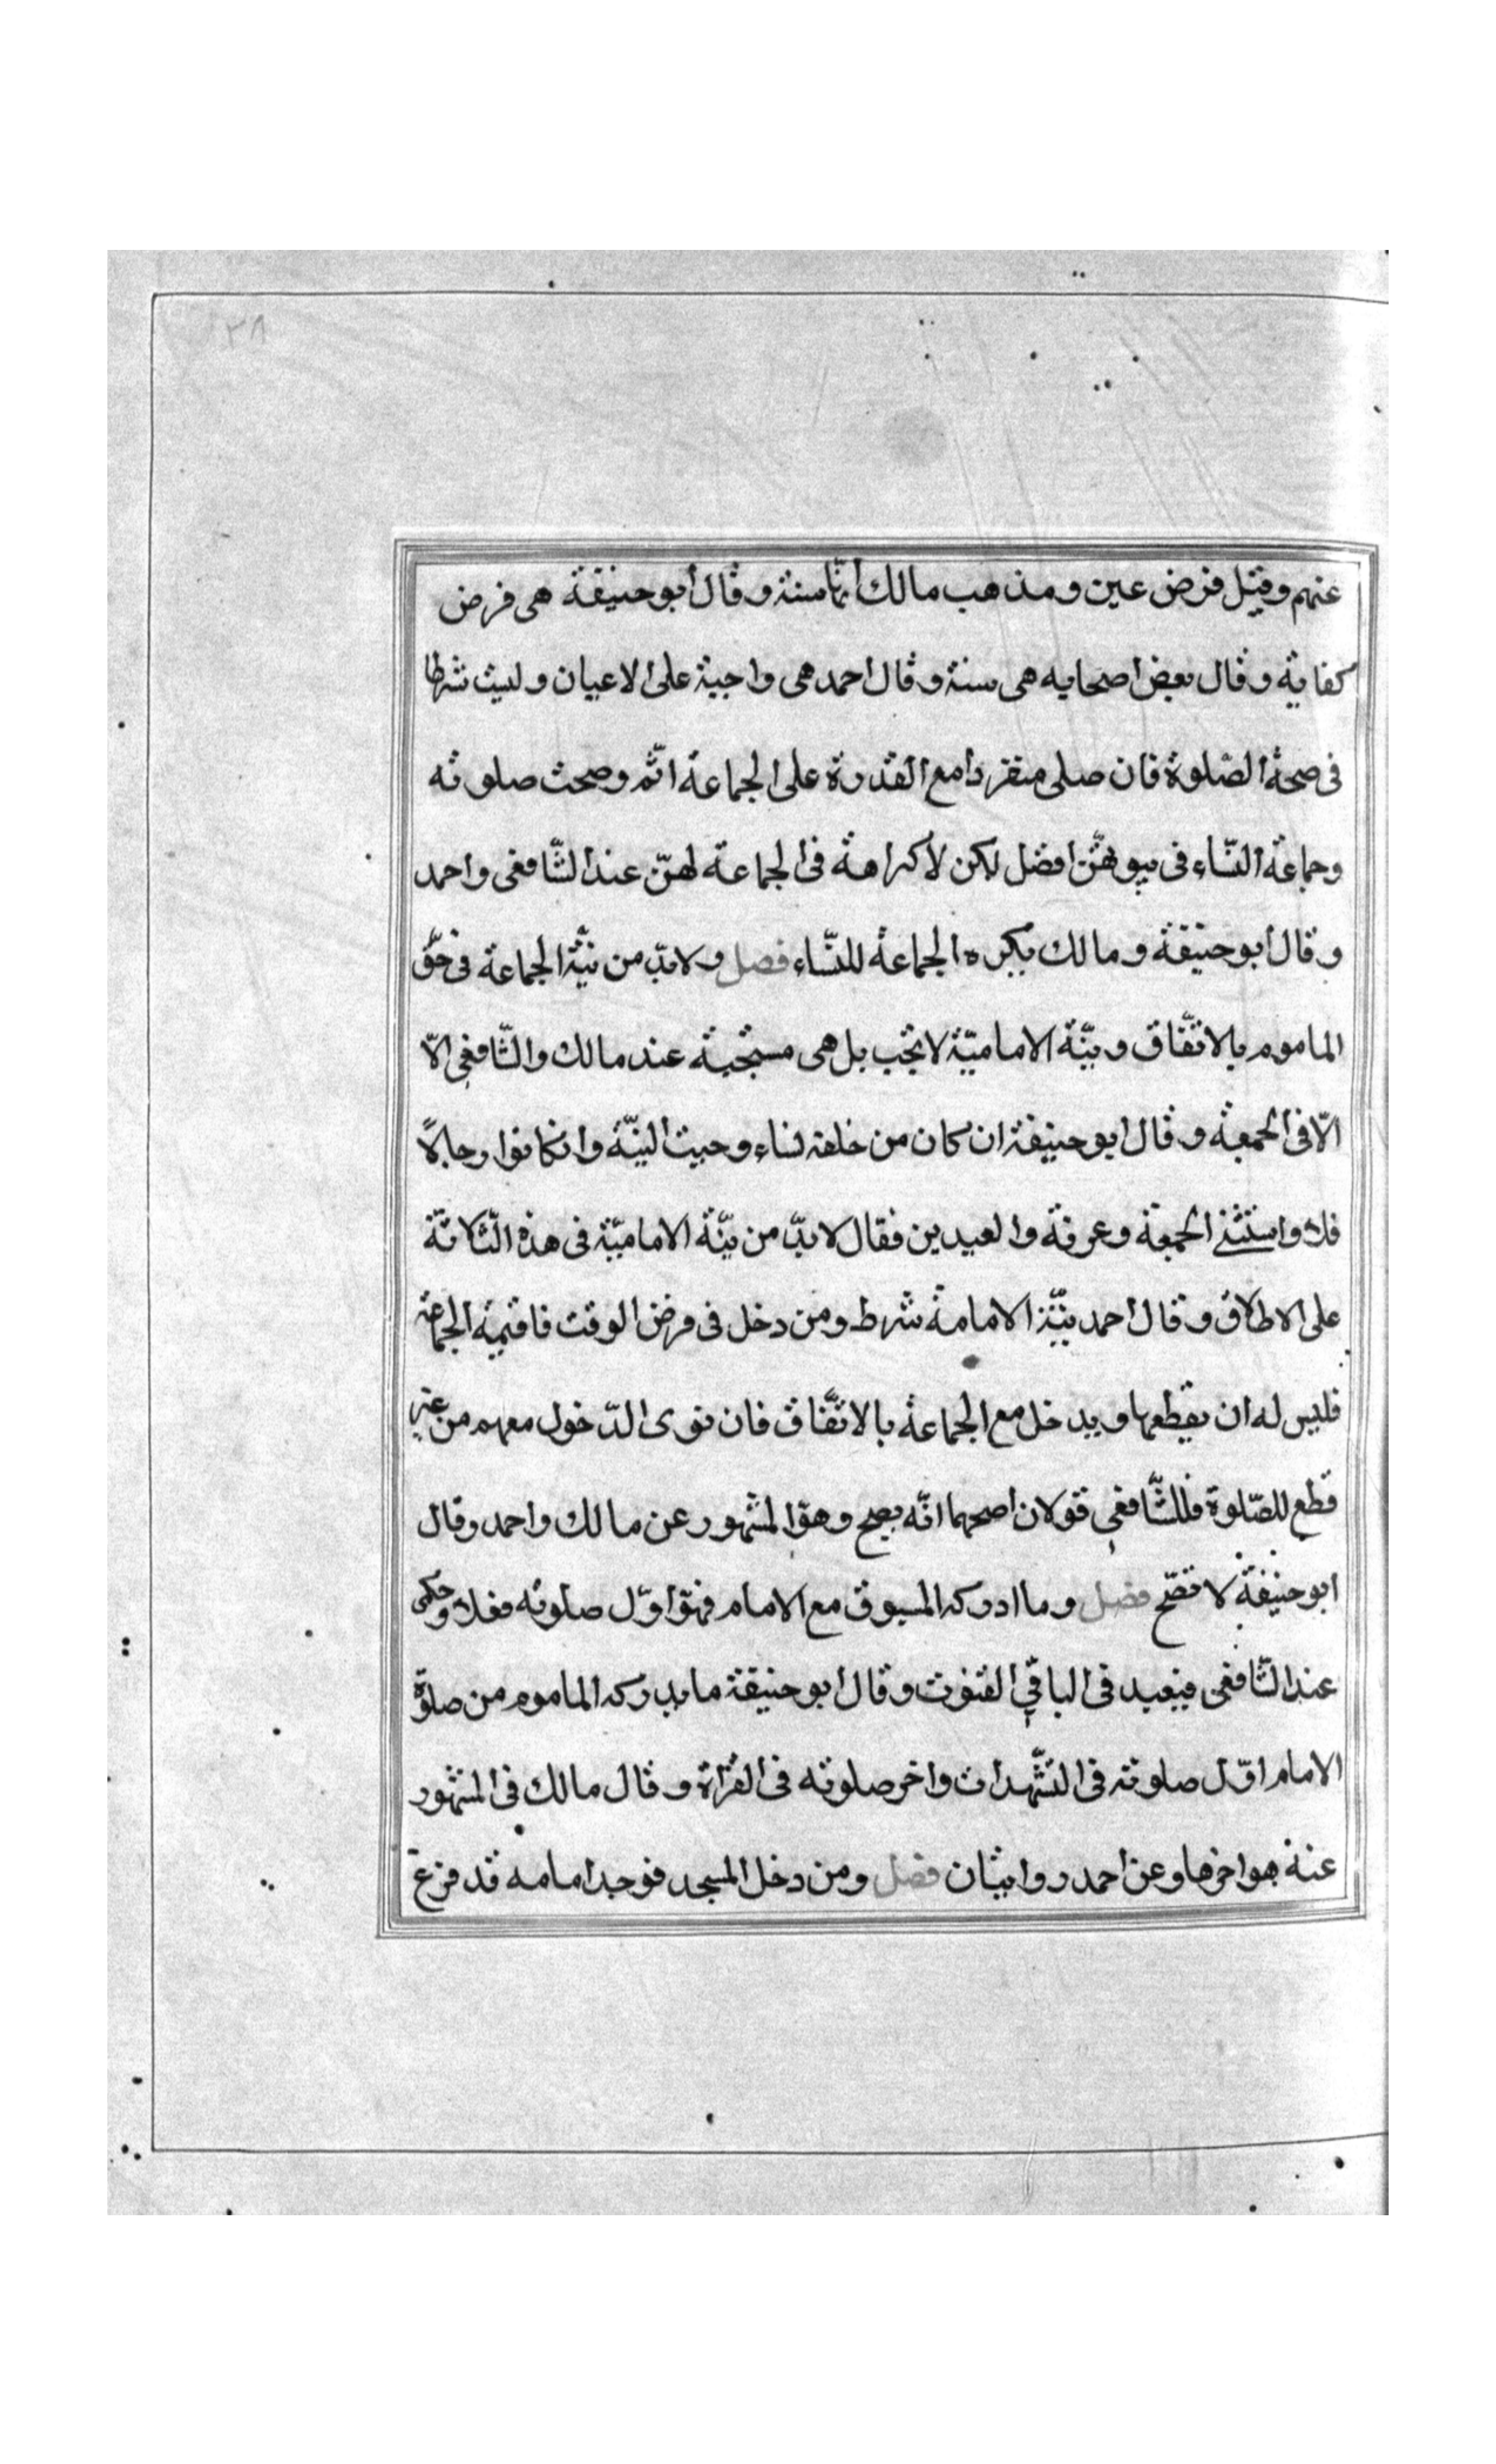 ٣٨
عنهم وقيل فرض عين ومذهب مالك انّها سنة وقال ابو حنيفة هى فرض
كفاية وقال بعض اصحابه هى سنة وقال احمد هى واجبة على الاعيان وليست شرطا
فى صحة الصّلوة فان صلى منفردا مع القدرة على الجماعة اثم وصحت صلوته
وجماعة النّساء فى بيوتهنّ افضل لكن لا كراهة فى الجماعة لهنّ عند الشّافعى واحمد
وقال ابو حنيفة ومالك يكره الجماعة للنّساء فصل ولا بدّ من نيّة الجماعة فى حقّ
الماموم بالاتفّاق ونيّة الاماميّة لا تجب بل هى مستحبة عند مالك والشّافعى الّا
الّا فى الجمعة وقال ابو حنيفة ان كان من خلفه نساء وجبت النيّة وان كانوا رجالاً
فلا واستثنے الجمعة وعرفة والعيدين فقال لا بدّ من نيّة الاماميّة فى هذه الثّلاثة
على الاطلاق وقال احمد نيّة الامامة شرط ومن دخل فى فرض الوقت فاقيمة الجماعة
فليس له ان يقطعها ويدخل مع الجماعة بالاتّفاق فان نوى الدّخول معهم من غير
قطع للصّلوة فللشّافعى قولان اصحهما انّه يصح وهو المشهور عن مالك واحمد وقال
ابو حنيفة لا تصّح فصل وما ادركه المسبوق مع الامام فهو اوّل صلوته فعلا وحكى
عند الشّافعى فيعيد فى الباقي القنوت وقال ابو حنيفة ما يدركه الماموم من صلوة
الامام اوّل صلوته فى التشّهدات واخر صلوته فى القراة وقال مالك فى المشهور
عنه هو اخرها وعن احمد روايتان فصل ومن دخل المسجد فوجد امامه قد فرغ